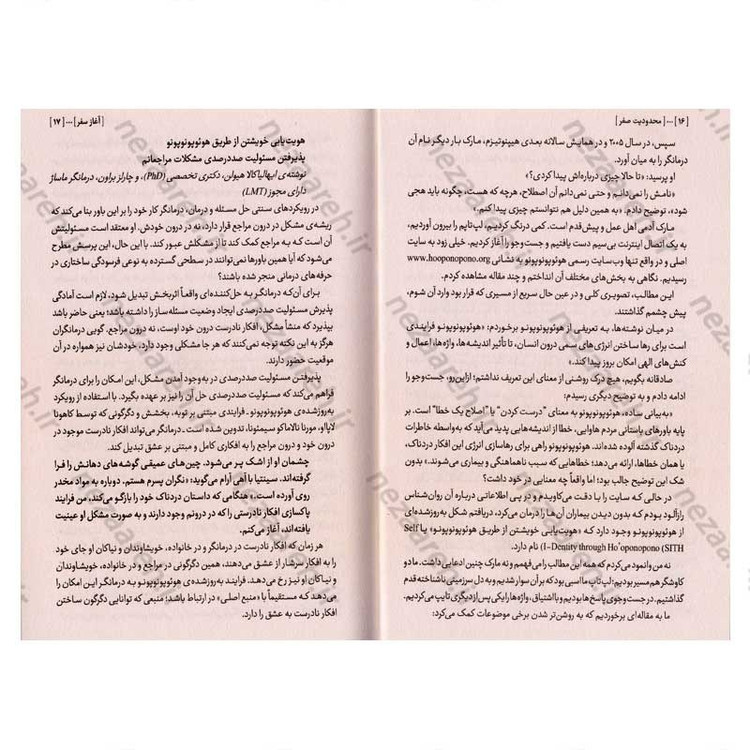 [ ۱۶ ] ... [ محدودیت صفر ]
سپس، در سال ۲۰۰۵ و در همایش سالانه بعدی هیپنوتیزم، مارک بار دیگر نام آن
درمانگر را به میان آورد.
او پرسید: «تا حالا چیزی درباره‌اش پیدا کردی؟»
«نامش را نمی‌دانم و حتی نمی‌دانم آن اصطلاح، هرچه که هست، چگونه باید هجی
شود»، توضیح دادم. «به همین دلیل هم نتوانستم چیزی پیدا کنم.»
مارک آدمی اهل عمل و پیش‌قدم است. کمی درنگ کردیم، لپ‌تاپم را بیرون آوردیم،
به یک اتصال اینترنت بی‌سیم دست یافتیم و جست‌وجو را آغاز کردیم. خیلی زود به سایت
اصلی و در واقع تنها وب‌سایت رسمی هوئوپونوپونو به نشانی www.hooponopono.org
رسیدیم. نگاهی به بخش‌های مختلف آن انداختم و چند مقاله مشاهده کردم.
این مطالب، تصویری کلی و در عین حال سریع از مسیری که قرار بود وارد آن شوم،
پیش چشمم گذاشتند.
در میان نوشته‌ها، به تعریفی از هوئوپونوپونو برخوردم: «هوئوپونوپونو فرایندی
است برای رها ساختن انرژی‌های سمی درون انسان، تا تأثیر اندیشه‌ها، واژه‌ها، اعمال و
کنش‌های الهی امکان بروز پیدا کند.»
صادقانه بگویم، هیچ درک روشنی از معنای این تعریف نداشتم؛ ازاین‌رو، جست‌وجو را
ادامه دادم و به توضیح دیگری رسیدم:
«به‌بیانی ساده، هوئوپونوپونو به معنای "درست کردن" یا "اصلاح یک خطا" است. بر
پایه باورهای باستانی مردم هاوایی، خطا از اندیشه‌هایی پدید می‌آید که به‌واسطه خاطرات
دردناک گذشته آلوده شده‌اند. هوئوپونوپونو راهی برای رهاسازی انرژی این افکار دردناک،
یا همان خطاها، ارائه می‌دهد؛ خطاهایی که سبب ناهماهنگی و بیماری می‌شوند.» بدون
شک این توضیح جالب بود؛ اما واقعاً چه معنایی در خود داشت؟
در حالی که سایت را با دقت می‌کاویدم و در پی اطلاعاتی درباره آن روان‌شناس
رازآلود بودم که بدون دیدن بیماران آن‌ها را درمان می‌کرد، دریافتم شکل به‌روزشده‌ای
از هوئوپونوپونو وجود دارد که «هویت‌یابی خویشتن از طریق هوئوپونوپونو» یا Self
I-Dentity through Ho'oponopono (SITH) نام دارد.
نه من وانمود می‌کردم که همه این مطالب را می‌فهمم و نه مارک چنین ادعایی داشت. ما دو
کاوشگر هم‌مسیر بودیم؛ لپ‌تاپ ما اسبی بود که بر آن سوار شدیم و به دل سرزمینی ناشناخته قدم
گذاشتیم. در جست‌وجوی پاسخ‌ها بودیم و با اشتیاق، واژه‌ها را یکی پس از دیگری تایپ می‌کردیم.
ما به مقاله‌ای برخوردیم که به روشن‌تر شدن برخی موضوعات کمک می‌کرد:
[ آغاز سفر ] ... [ ۱۷ ]
هویت‌یابی خویشتن از طریق هوئوپونوپونو
پذیرفتن مسئولیت صددرصدی مشکلات مراجعانم
نوشته‌ی ایهالیاکالا هیولن، دکتری تخصصی (PhD)، و چارلز براون، درمانگر ماساژ
دارای مجوز (LMT)
در رویکردهای سنتی حل مسئله و درمان، درمانگر کار خود را بر این باور بنا می‌کند که
ریشه‌ی مشکل در درون مراجع قرار دارد، نه در درون خودش. او معتقد است مسئولیتش
آن است کـه به مراجع کمک کند تا از مشکلش عبور کند. با این حال، این پرسش مطرح
می‌شود که آیا همین باورها نمی‌توانند در سطحی گسترده به نوعی فرسودگی ساختاری در
حرفه‌های درمانی منجر شده باشند؟
برای آن‌کـه درمانگر به حل‌کننده‌ای واقعاً اثربخش تبدیل شود، لازم است آمادگی
پذیرش مسئولیت صددرصدی ایجاد وضعیت مسئله‌ساز را داشته باشد؛ یعنی حاضر باشد
بپذیرد که منشأ مشکل، افکار نادرست درون خود اوست، نه درون مراجع. گویی درمانگران
هرگز به این نکته توجه نمی‌کنند که هر جا مشکلی وجود دارد، خودشان نیز همواره در آن
موقعیت حضور دارند.
پذیرفتن مسئولیت صددرصدی در به‌وجود آمدن مشکل، این امکان را برای درمانگر
فراهم می‌کند که مسئولیت صددرصدی حل آن را نیز بر عهده بگیرد. با استفاده از رویکرد
به‌روزشده‌ی هوئوپونوپونو، فرایندی مبتنی بر توبه، بخشش و دگرگونی که توسط کاهونا
لاپااو، مورنا نالاماکو سیمئونا، تدوین شده است، درمانگر می‌تواند افکار نادرست موجود در
درون خود و درون مراجع را به افکاری کامل و مبتنی بر عشق تبدیل کند.
چشمان او از اشک پر می‌شود. چین‌های عمیقی گوشه‌های دهانش را فرا
گرفته‌اند. سینتیا با آهی آرام می‌گوید: «نگران پسرم هستم. دوباره به مواد مخدر
روی آورده است.» هنگامی که داستان دردناک خود را بازگو می‌کند، من فرایند
پاکسازی افکار نادرستی را که در درونم وجود دارند و به صورت مشکل او عینیت
یافته‌اند، آغاز می‌کنم.
هر زمان که افکار نادرست در درمانگر و در خانواده، خویشاوندان و نیاکان او جای خود
را به افکاری سرشار از عشق می‌دهند، همین دگرگونی در مراجع و در خانواده، خویشاوندان
و نیاکان او نیز رخ می‌دهد. فرایند به‌روزشده‌ی هوئوپونوپونو به درمانگر این امکان را
می‌دهـد کـه مستقیماً با «منبع اصلی» در ارتباط باشد؛ منبعی که توانایی دگرگون ساختن
افکار نادرست به عشق را دارد.
nezaareh.ir